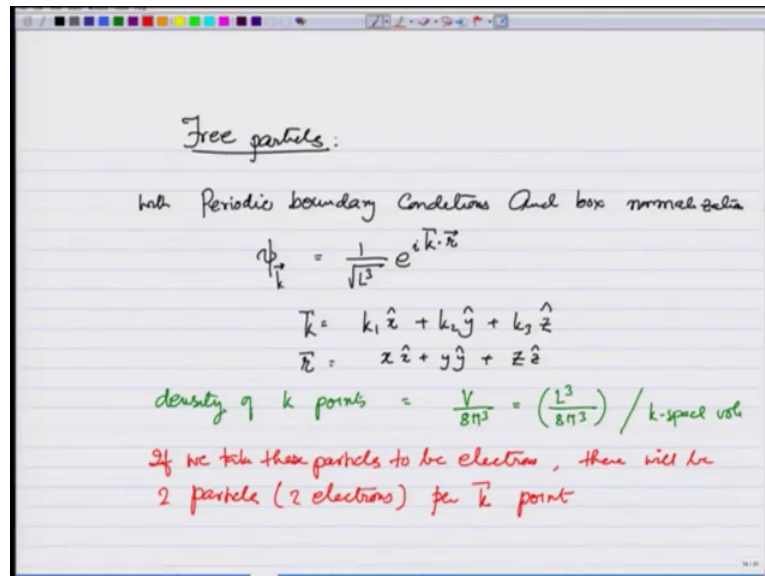 Free particles:
with Periodic boundary Conditions And box normalization
ψ_k⃗ = 1/√L³ e^{i k⃗·r⃗}
k⃗ = k₁ x̂ + k₂ ŷ + k₃ ẑ
r⃗ = x x̂ + y ŷ + z ẑ
density of k points = V/8π³ = (L³/8π³) / k-space vol
If we take these particles to be electrons, there will be
2 particle (2 electrons) per k⃗ point